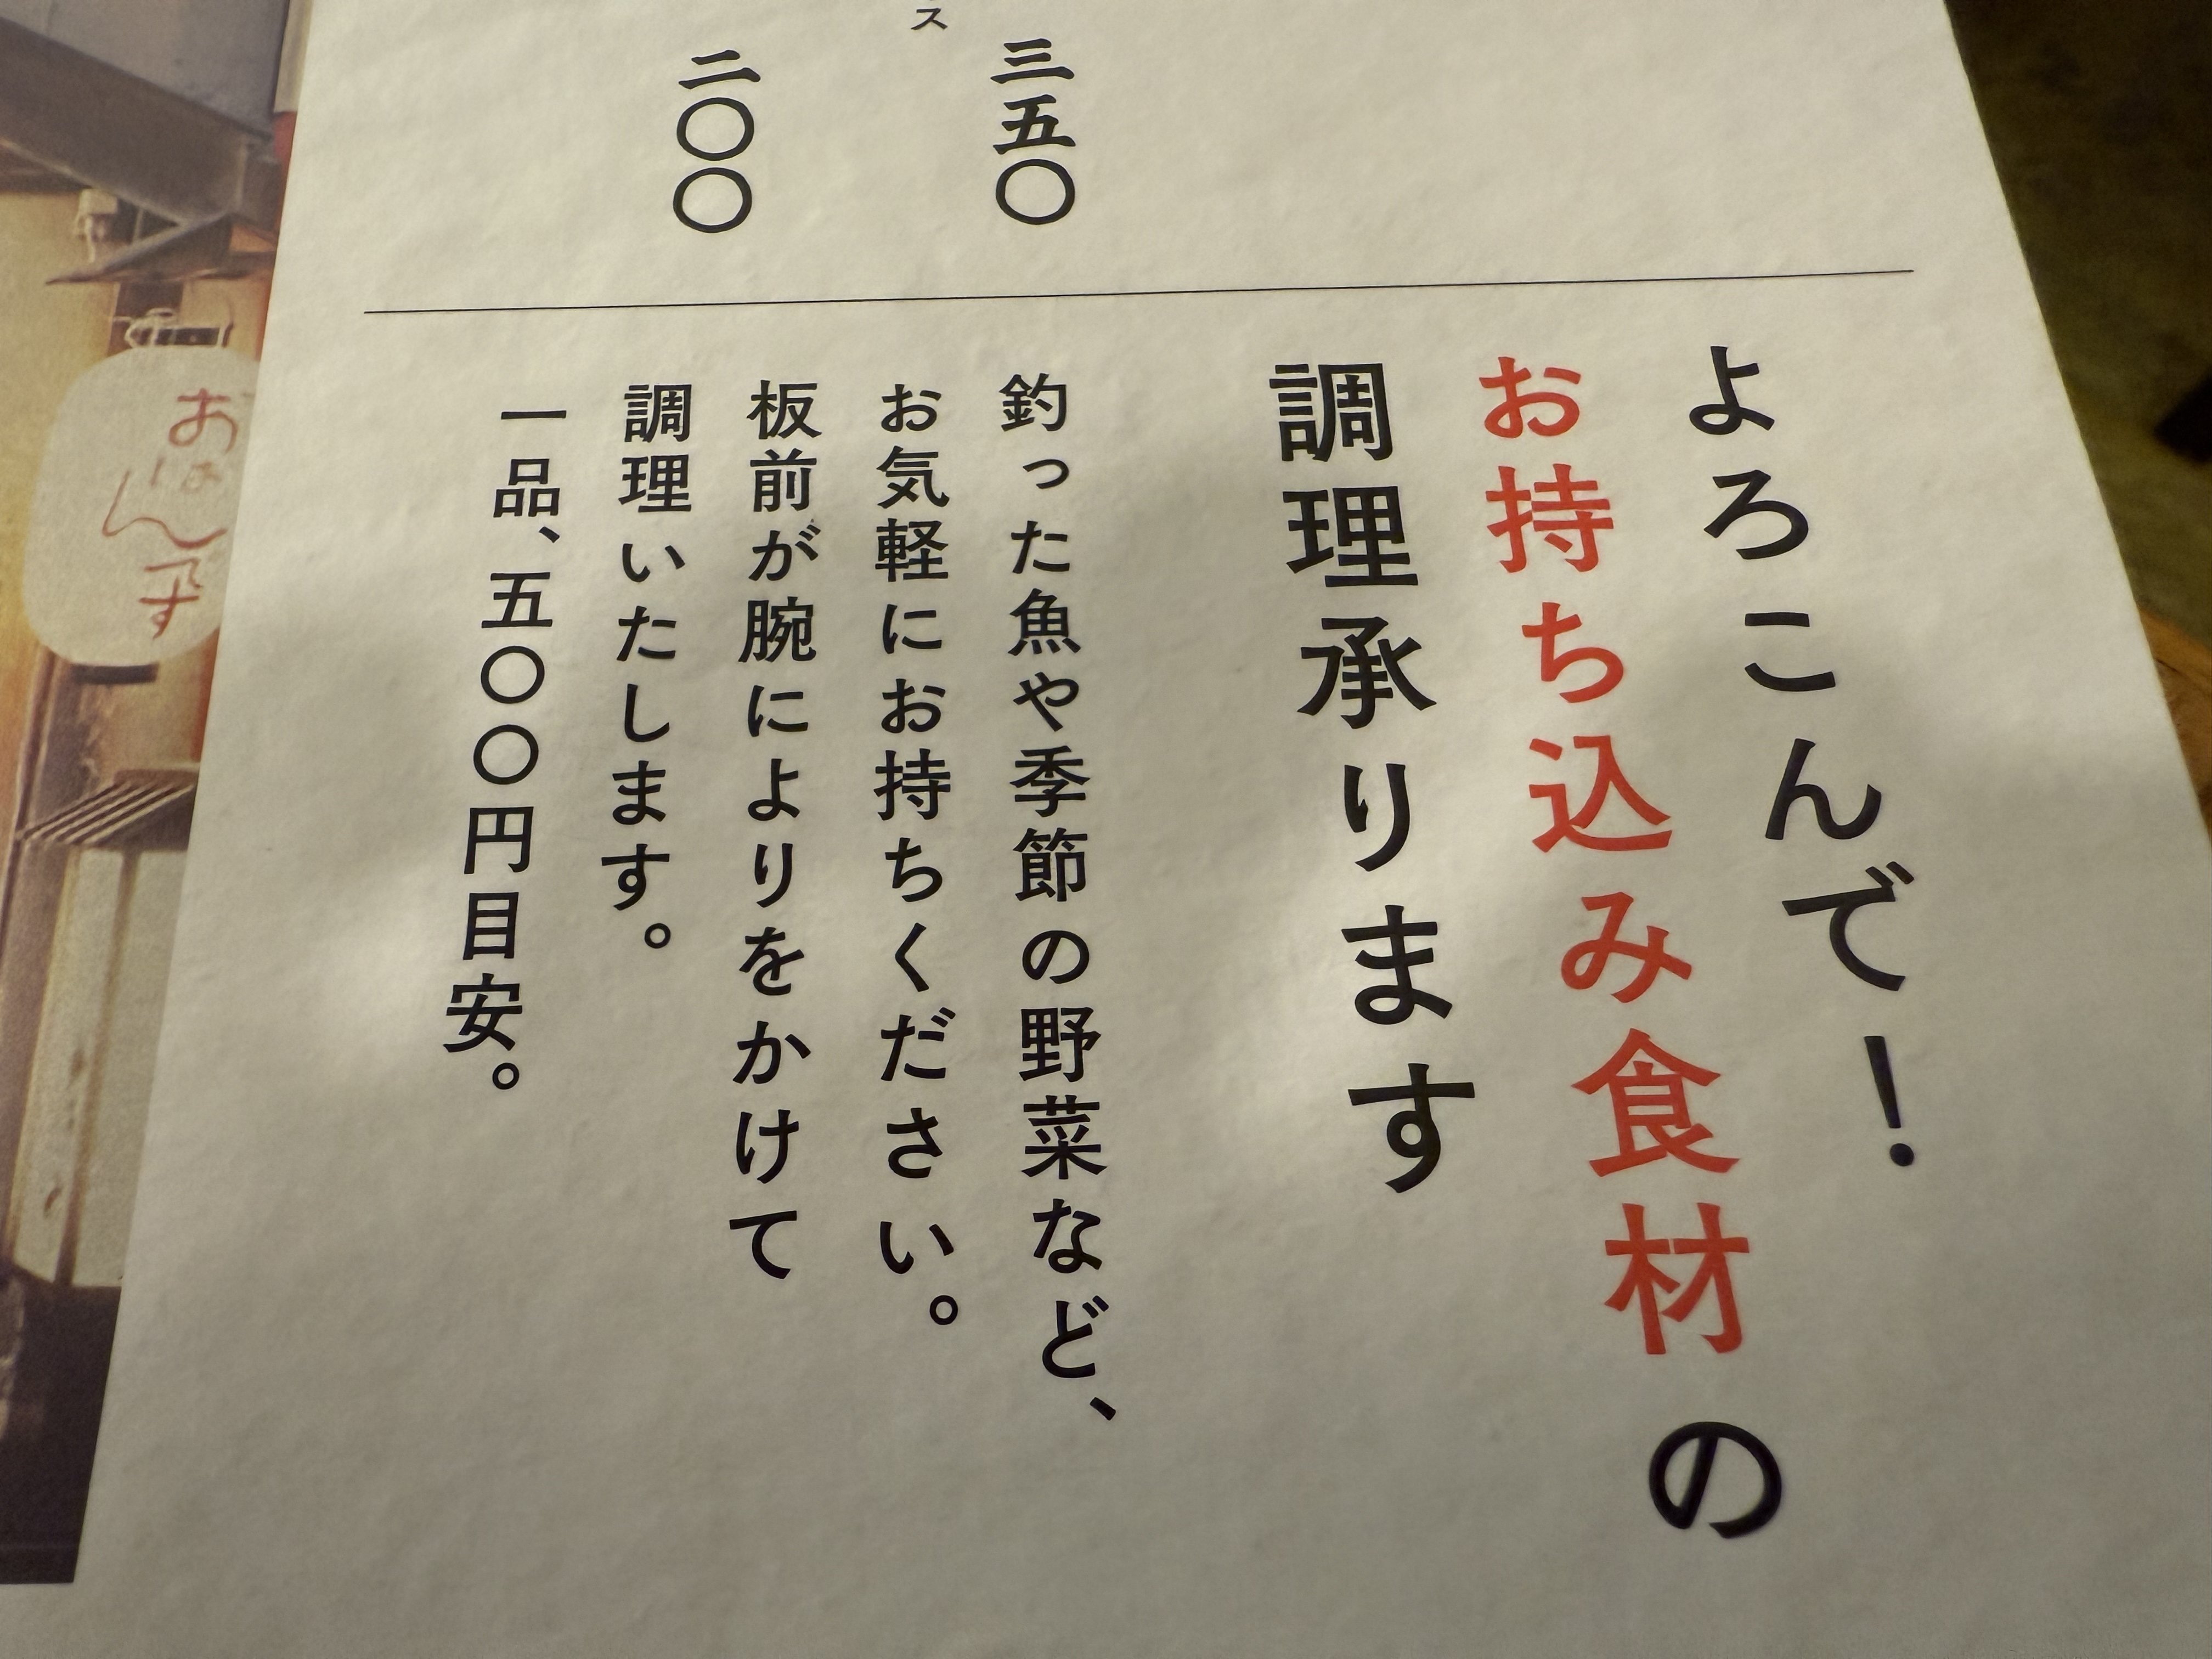 ス
三五〇
二〇〇
よろこんで!
お持ち込み食材の
調理承ります
釣った魚や季節の野菜など、
お気軽にお持ちください。
板前が腕によりをかけて
調理いたします。
一品、五〇〇円目安。